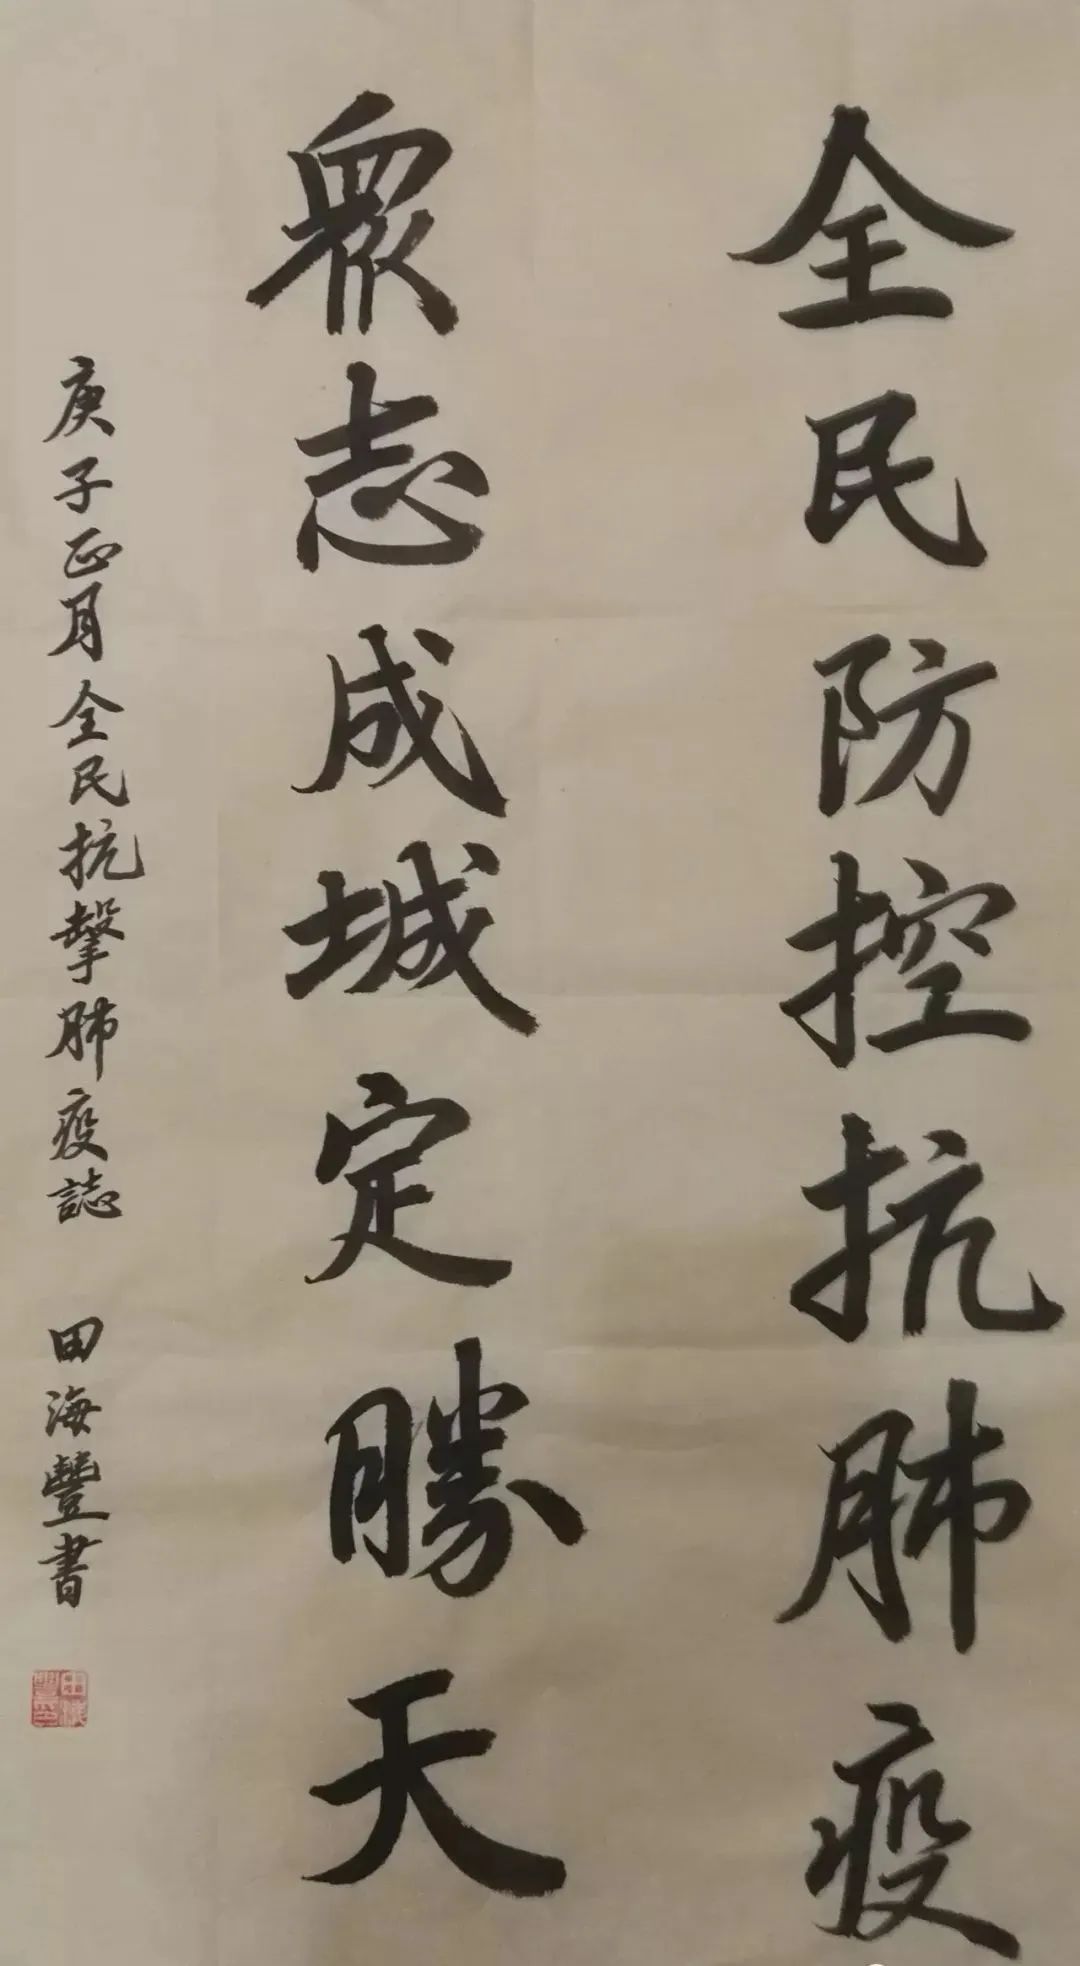 全民防控抗肺疫
眾志成城定勝天
庚子正月全民抗擊肺疫誌 田海豐書